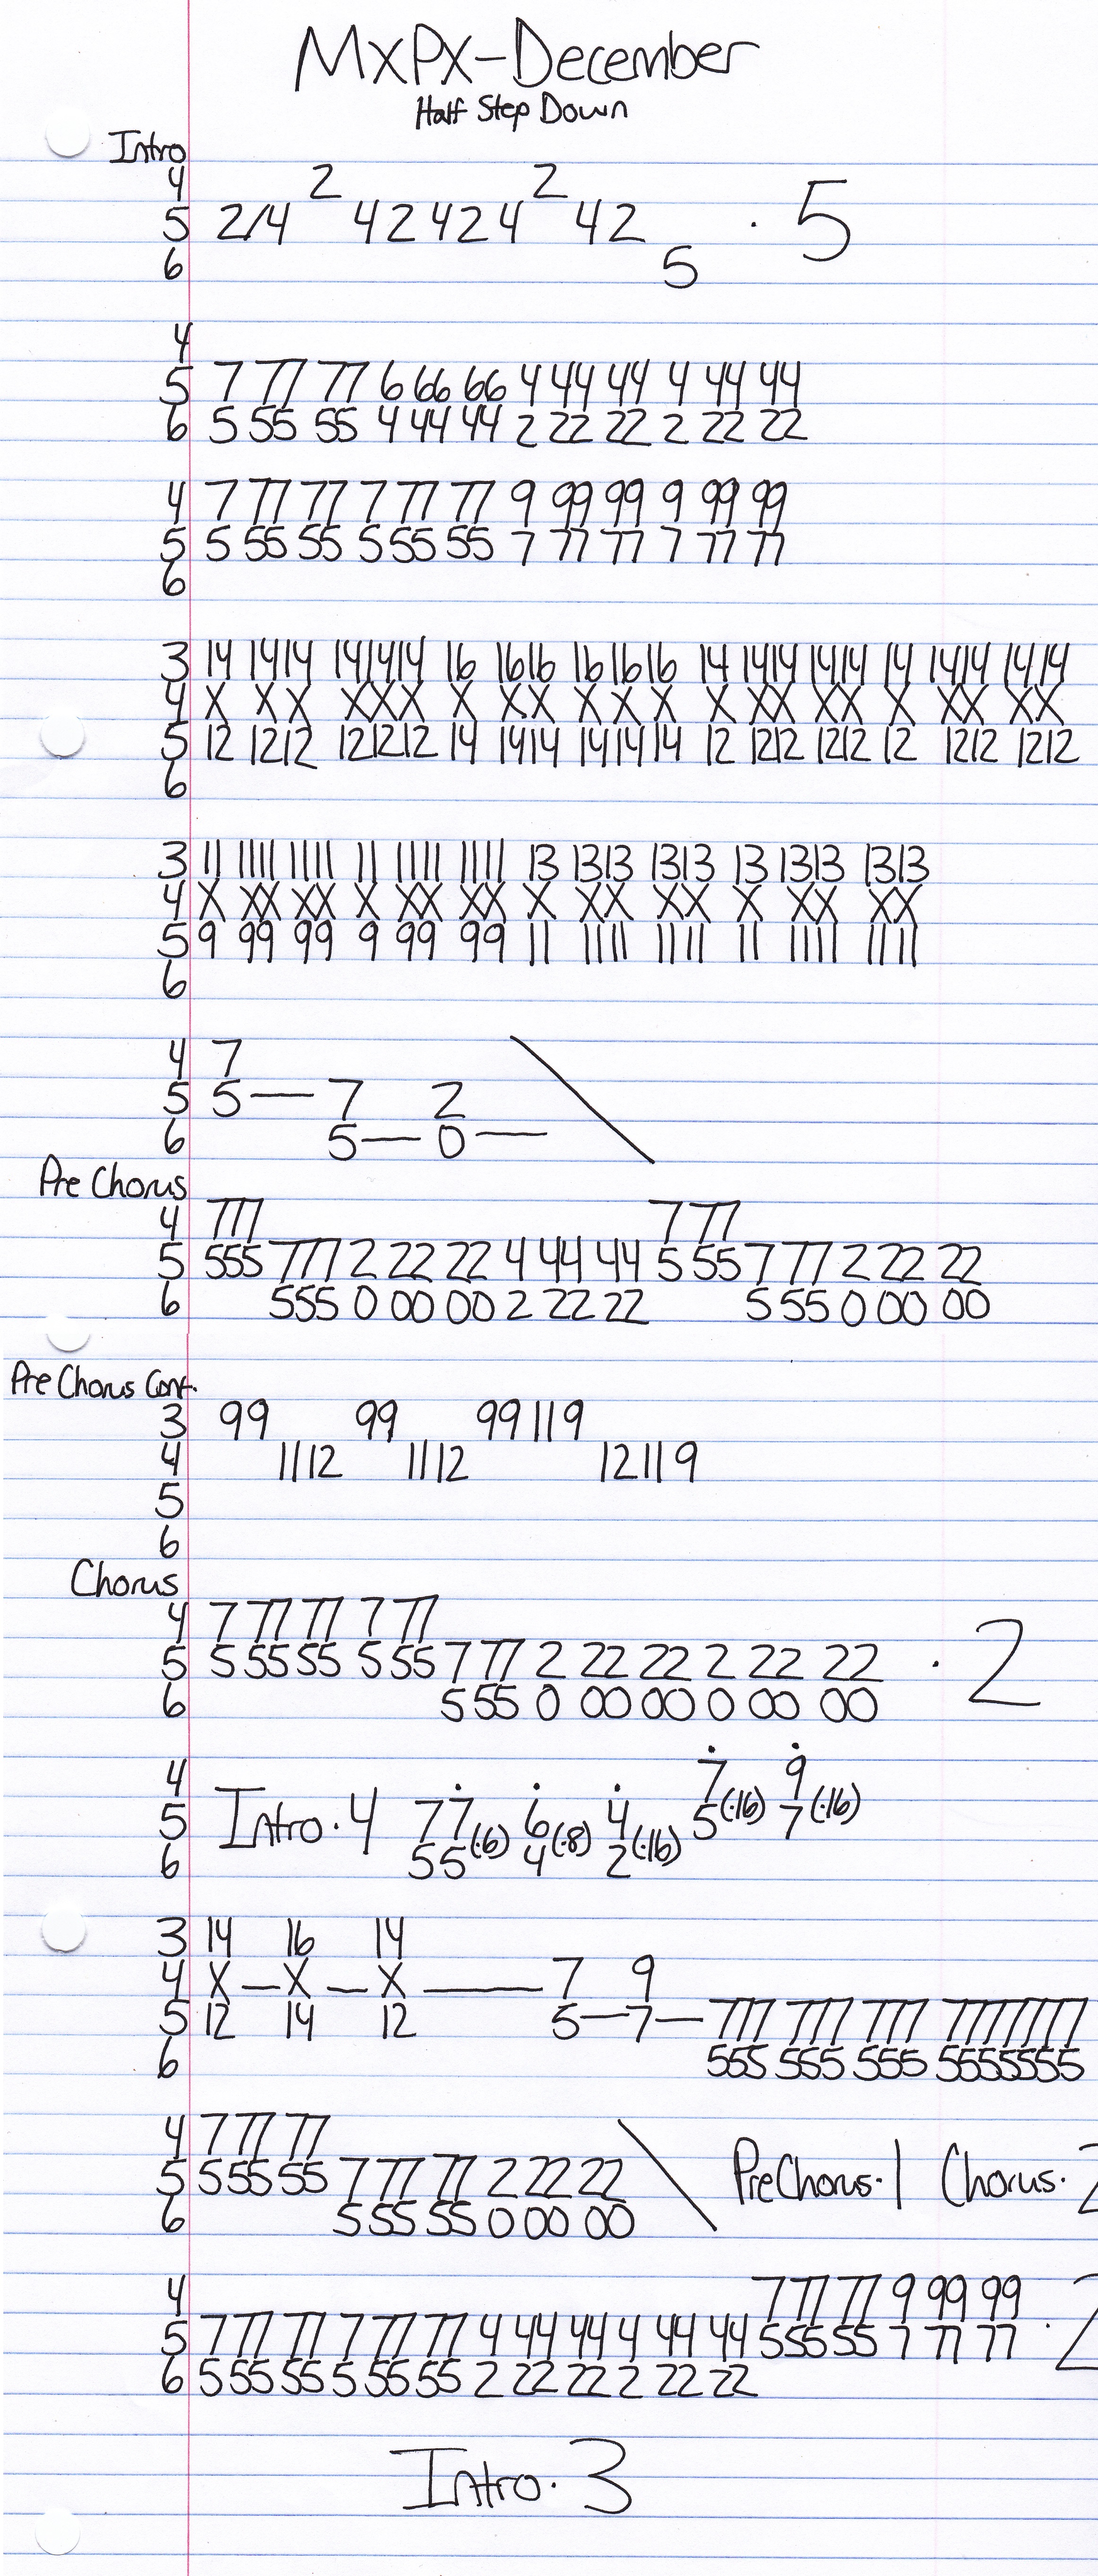 MXPX-December
Half Step Down
Intro
4 2 2
5 2/4 42424 42 · 5
6 5
4
5 7 77 77 6 66 66 4 44 44 4 44 44
6 5 55 55 4 44 44 2 22 22 2 22 22
4 7 77 77 7 77 77 9 99 99 9 99 99
5 5 55 55 5 55 55 7 77 77 7 77 77
6
3 14 1414 141414 16 1616 161616 14 1414 1414 14 1414 1414
4 X XX XXX X XX XXX X XX XX X XX XX
5 12 1212 121212 14 1414 141414 12 1212 1212 12 1212 1212
6
3 11 1111 1111 11 1111 1111 13 1313 1313 13 1313 1313
4 X XX XX X XX XX X XX XX X XX XX
5 9 99 99 9 99 99 11 1111 1111 11 1111 1111
6
4 7
5 5 — 7 2
6 5 — 0 —
Pre Chorus
4 777 7 77
5 555 777 2 22 22 4 44 44 5 55 7 77 2 22 22
6 555 0 00 00 2 22 22 5 55 0 00 00
Pre Chorus Cont.
3 99 99 99 11 9
4 11 12 11 12 12 11 9
5
6
Chorus
4 7 77 77 7 77
5 5 55 55 5 55 7 77 2 22 22 2 22 22 · 2
6 5 55 0 00 00 0 00 00
4 7 9
5 Intro · 4 77(·6) 6(·8) 4(·16) 5(·16) 7(·16)
6 55 4 2
3 14 16 14
4 X — X — X — 7 9
5 12 14 12 5 — 7 — 777 777 777 7777777
6 555 555 555 5555555
4 7 77 77
5 5 55 55 7 77 77 2 22 22 PreChorus · 1 Chorus · 2
6 5 55 55 0 00 00
4 7 77 77 9 99 99
5 7 77 77 7 77 77 4 44 44 4 44 44 5 55 55 7 77 77 · 2
6 5 55 55 5 55 55 2 22 22 2 22 22
Intro · 3